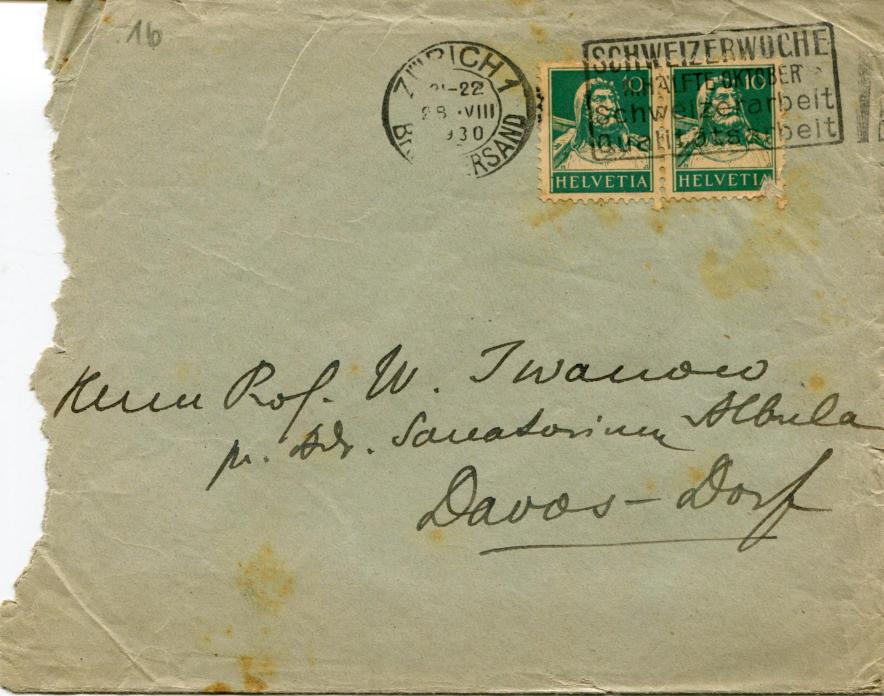 16
ZÜRICH 1
21-22
28.VIII
1930
SCHWEIZERWOCHE
HÄLFTE OKTOBER
schweizerarbeit
qualitätsarbeit
10
10
HELVETIA
HELVETIA
Herrn Prof. W. Iwanow
p. Adr. Sanatorium Albula
Davos-Dorf